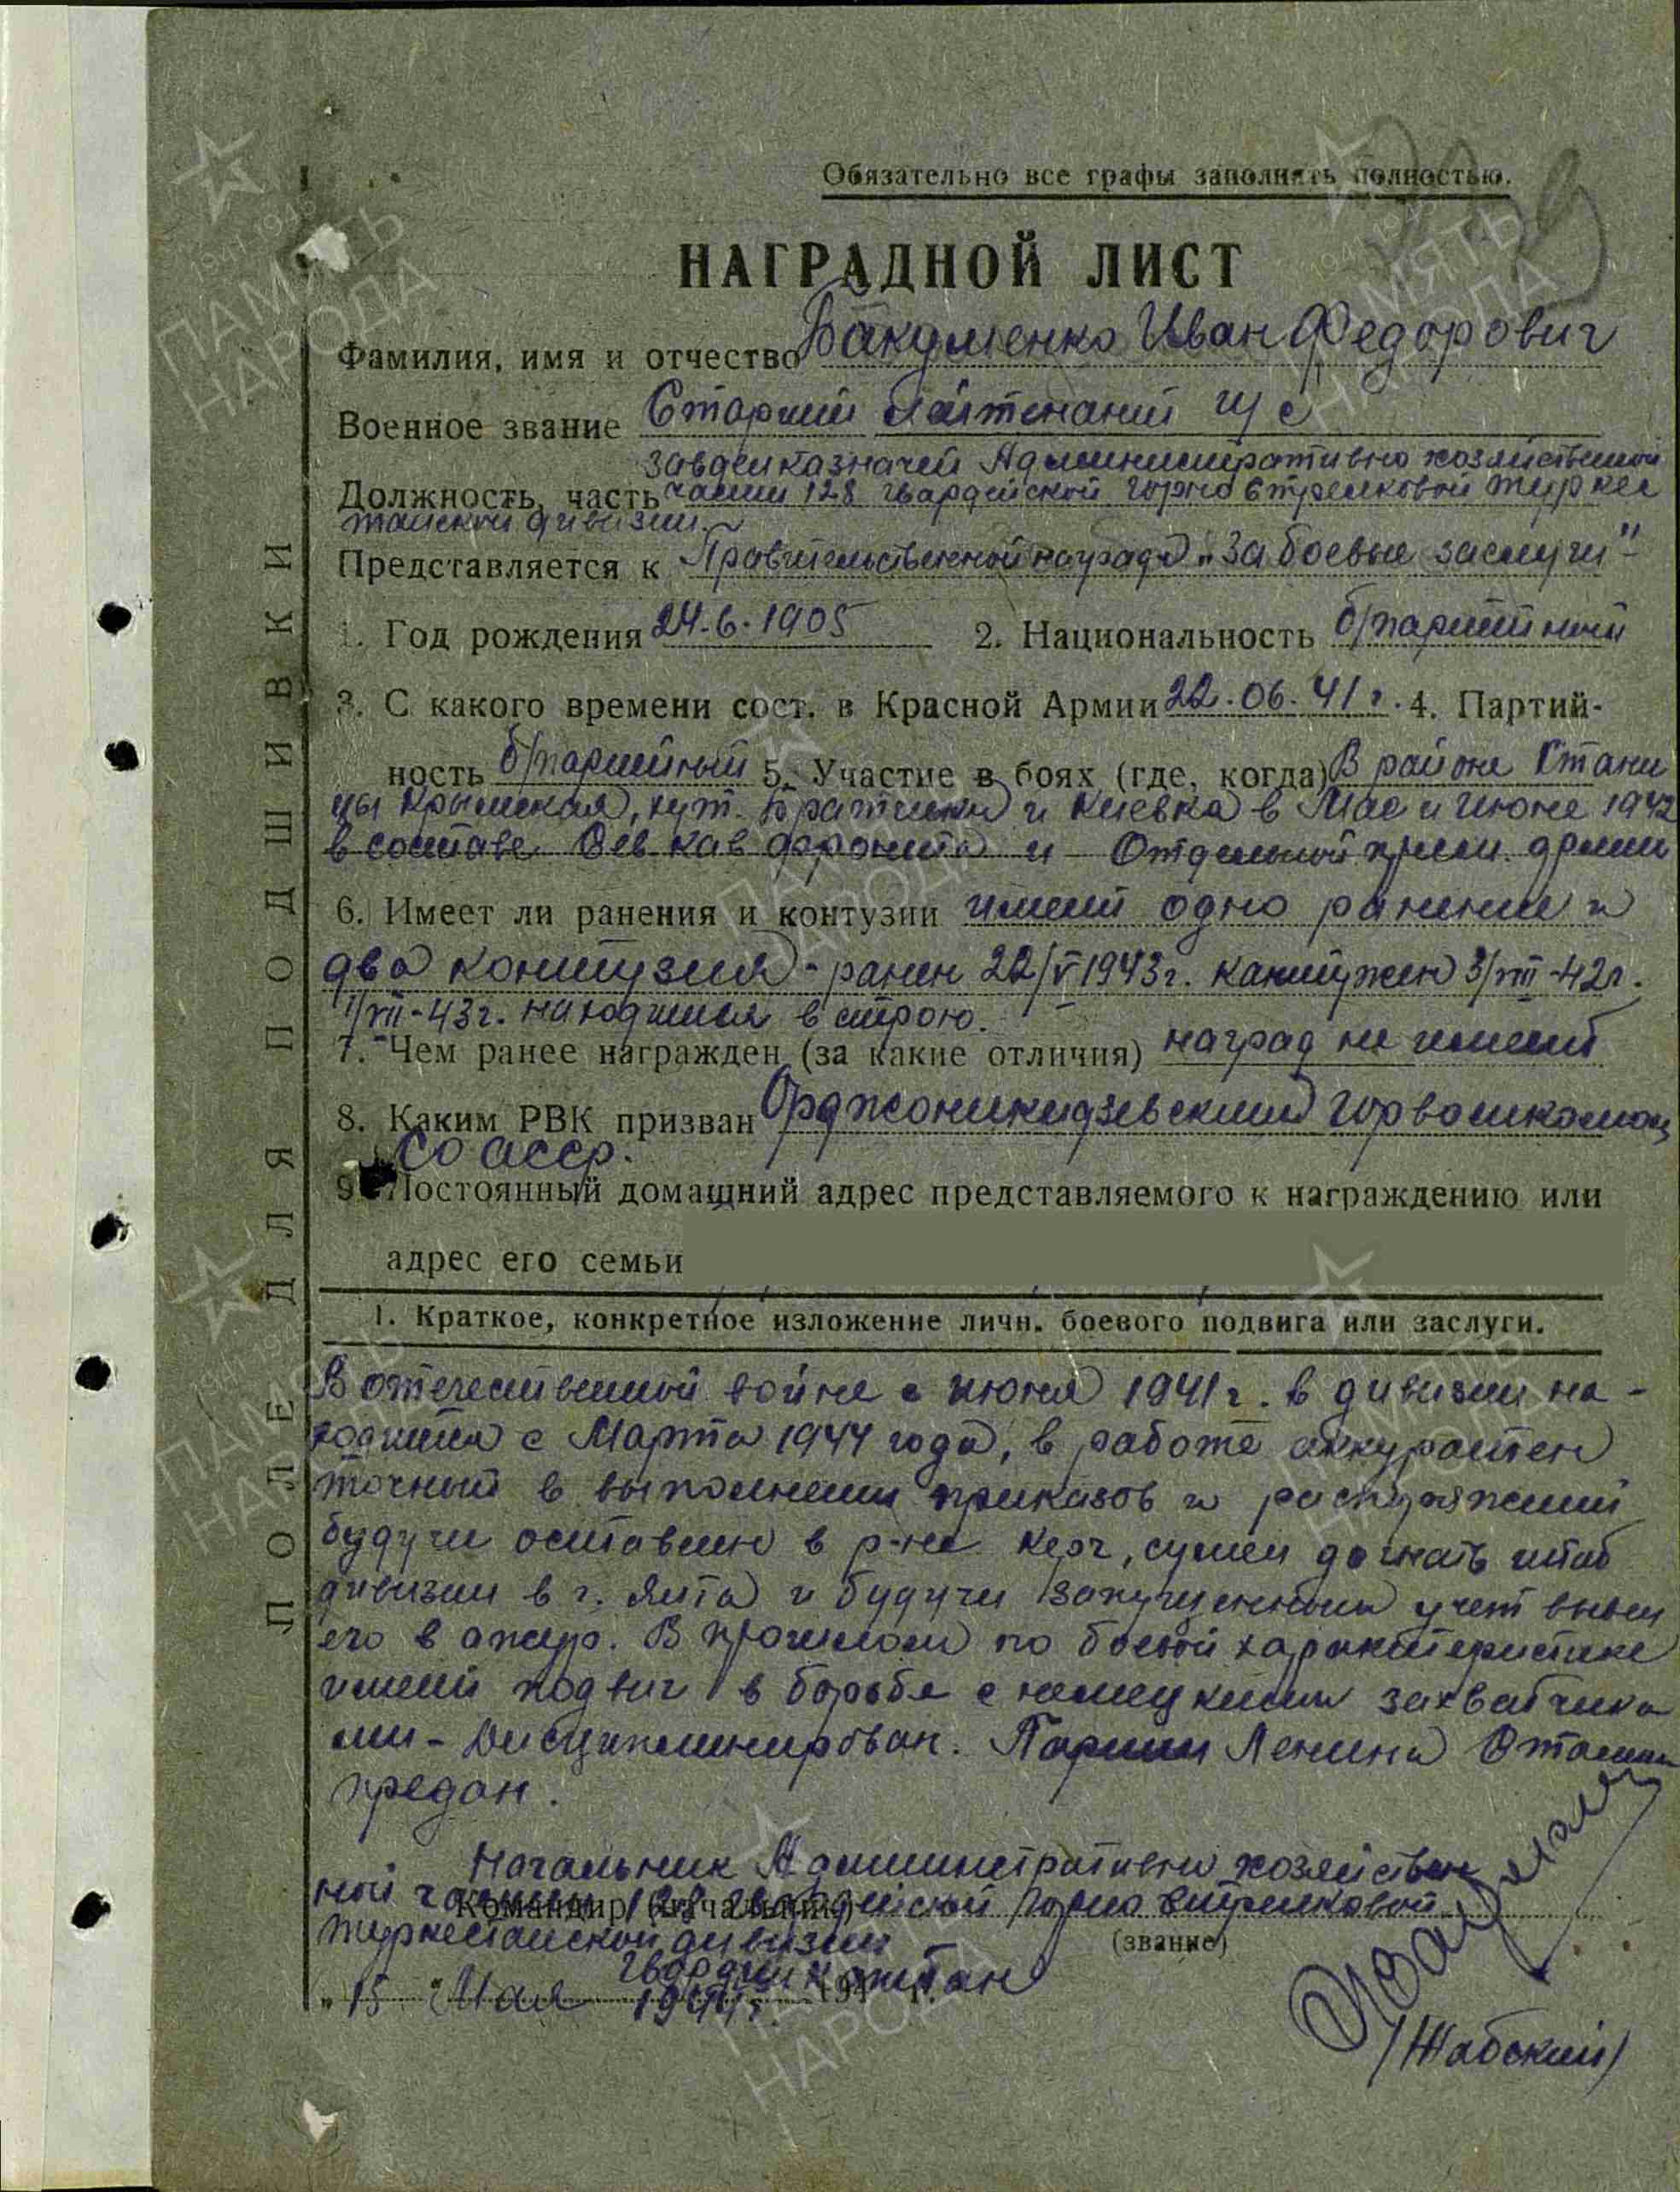 Обязательно все графы заполнять полностью.
НАГРАДНОЙ ЛИСТ
Фамилия, имя и отчество Бакуменко Иван Федорович
Военное звание Старший лейтенант и/с
завделказначей Административно хозяйственной
Должность, часть части 128 гвардейской горно стрелковой туркес
танской дивизии.
Представляется к Правительственной награде „За боевые заслуги"
1. Год рождения 24.6.1905 2. Национальность б/партийный
3. С какого времени сост. в Красной Армии 22.06.41 г. 4. Партий-
ность б/партийный 5. Участие в боях (где, когда) В районе Стани
цы Крымская, хут. и Киевка в Мае и июне 1943
в составе Сев кав фронта и Отдельной прим. армии
6. Имеет ли ранения и контузии имеет одно ранение и
два контузия - ранен 22/V 1943г. кантужен 3/VIII-42г.
1/VII-43г. находился в строю.
7. Чем ранее награжден (за какие отличия) наград не имеет
8. Каким РВК призван Орджоникидзевским горвоенкоматом
СО АССР.
9. Постоянный домашний адрес представляемого к награждению или
адрес его семьи
1. Краткое, конкретное изложение личн. боевого подвига или заслуги.
В отечественной войне с июня 1941г. в дивизии на-
ходится с Марта 1944 года, в работе аккуратен
точный в выполнении приказов и распоряжений
будучи оставлен в р-не Керч, сумел догнать штаб
дивизии в г. Ялта и будучи запущенным учет вывел
его в ажур. В прошлом по боевой характеристике
имеет подвиг в борьбе с немецкими захватчика
ми - Дисциплинирован. Партии Ленина Сталина
предан.
Начальник Административно хозяйствен
ной части 128 гвардейской Горно стрелковой
Командир (начальник)
Туркестанской дивизии
(звание)
гвардии капитан
„15" Мая 1944г. 194 г.
/Жабский/
ПОЛЕ ДЛЯ ПОДШИВКИ
1941-1945
ПАМЯТЬ
НАРОДА